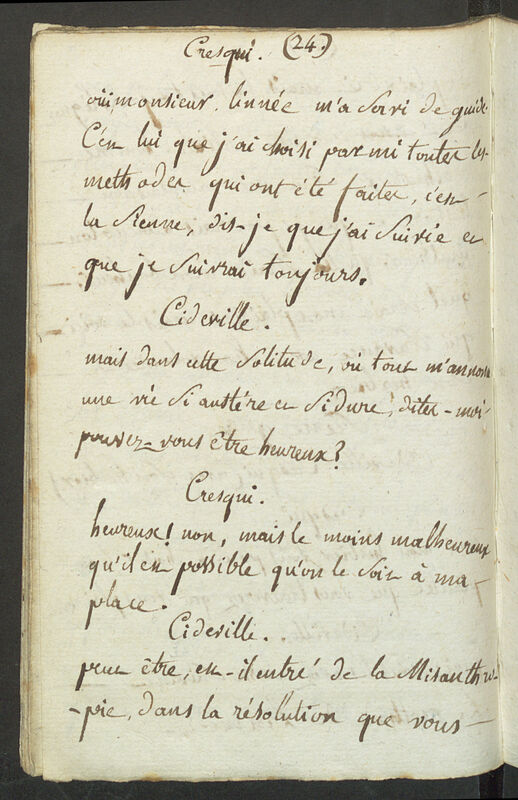 Cresqui. (24.)
oüi monsieur, linnée m'a servi de guide
C'est lui que j'ai choisi parmi toutes les
methodes qui ont été faites, c'est
la sienne, dis-je que j'ai suivie et
que je suivrai toujours.
Cideville.
mais dans cette solitude, où tout m'annonce
une vie si austére et si dure, dites-moi
pouvez-vous être heureux?
Cresqui.
heureux! non, mais le moins malheureux
qu'il est possible qu'on le soit à ma
place.
Cideville.
peut être, est-il entré de la Misanthro-
-pie, dans la résolution que vous